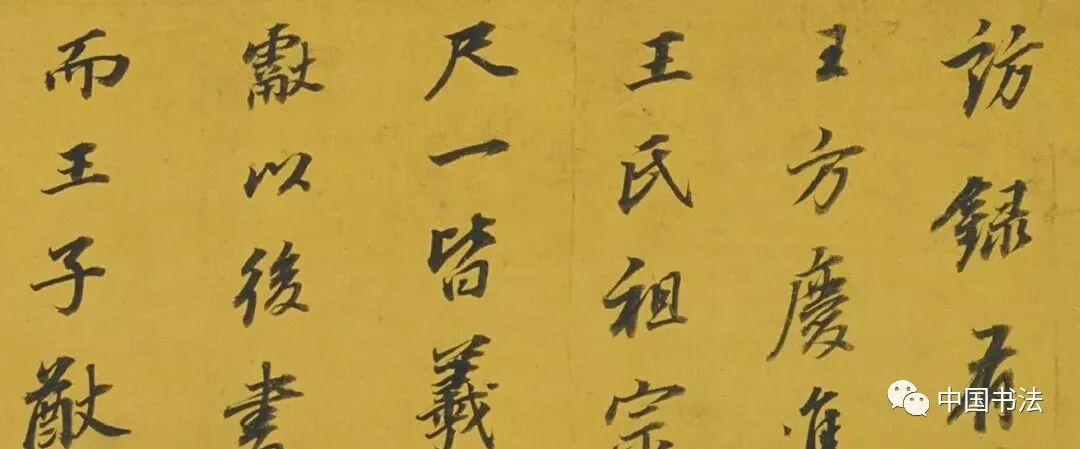 訪録有
王方慶進
王氏祖宗
尺一皆羲
獻以後書
而王子猷
中国书法